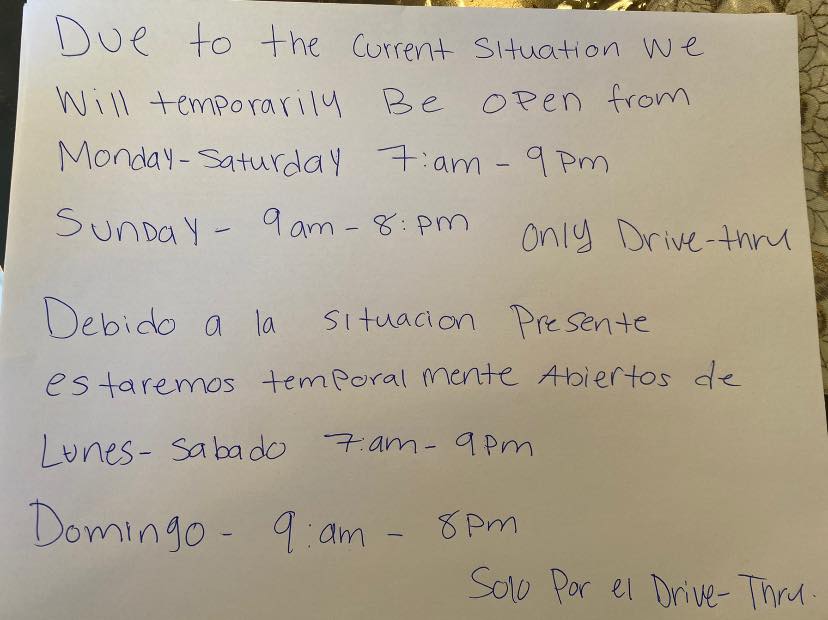 Due to the current situation we
will temporarily Be open from
Monday-Saturday 7:am - 9 pm
Sunday - 9am - 8:pm only Drive-thru
Debido a la situacion presente
estaremos temporalmente Abiertos de
Lunes- sabado 7:am - 9pm
Domingo - 9:am - 8pm
Solo por el Drive-Thru.